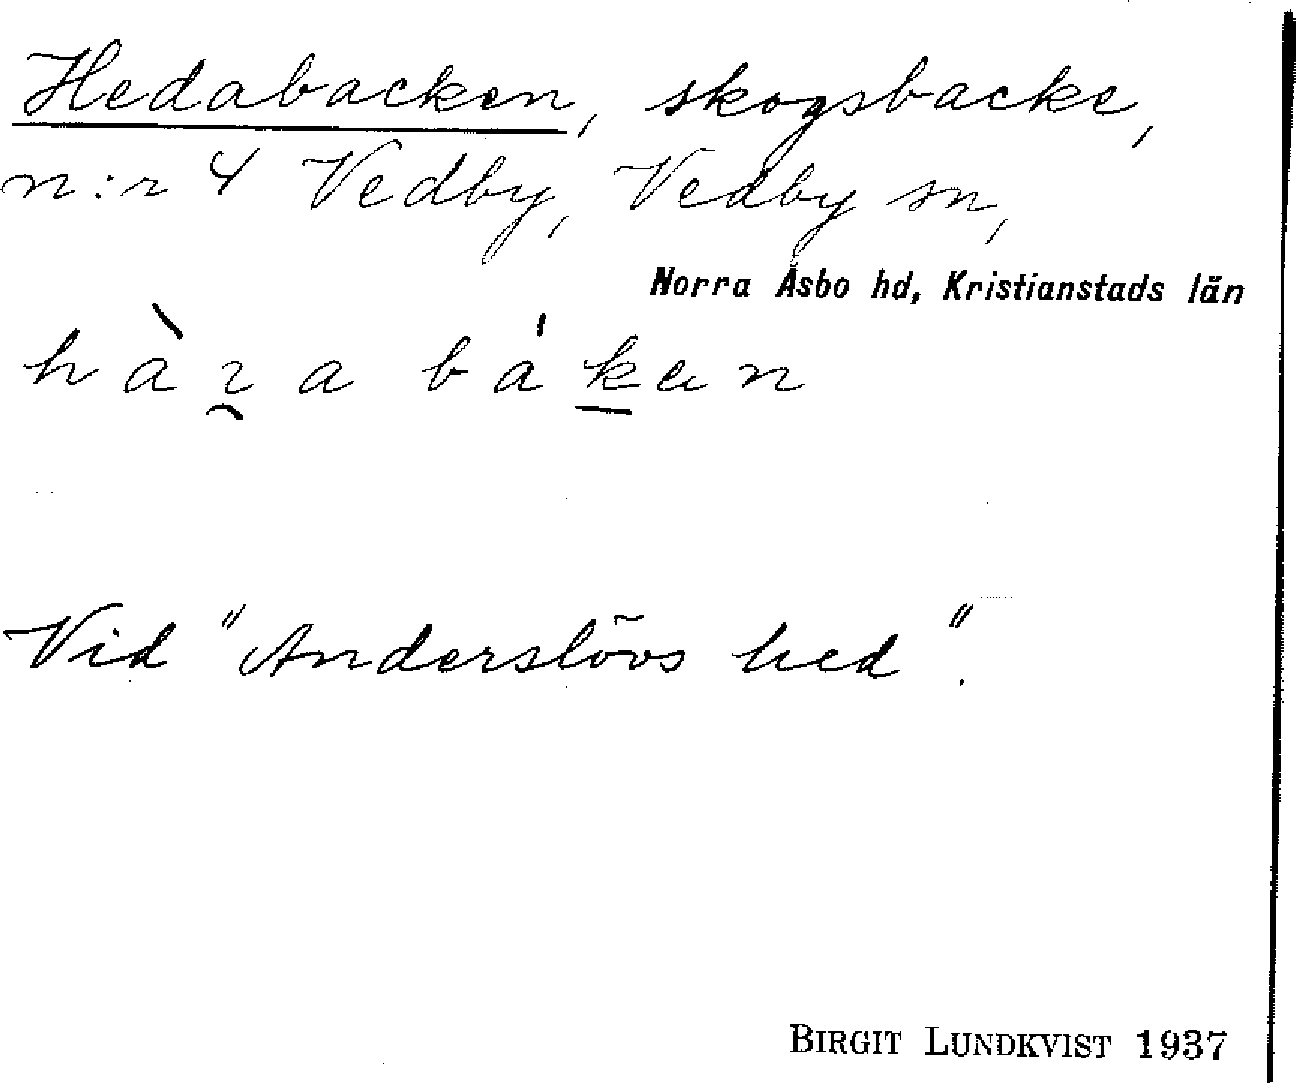 Hedabacken, skogsbacke,
n:r 4 Vedby, Vedby sn,
Norra Åsbo hd, Kristianstads län
Vid "Anderslövs hed".
BIRGIT LUNDKVIST 1937